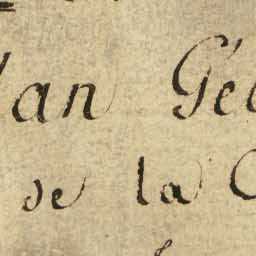 lan Gé
de la C